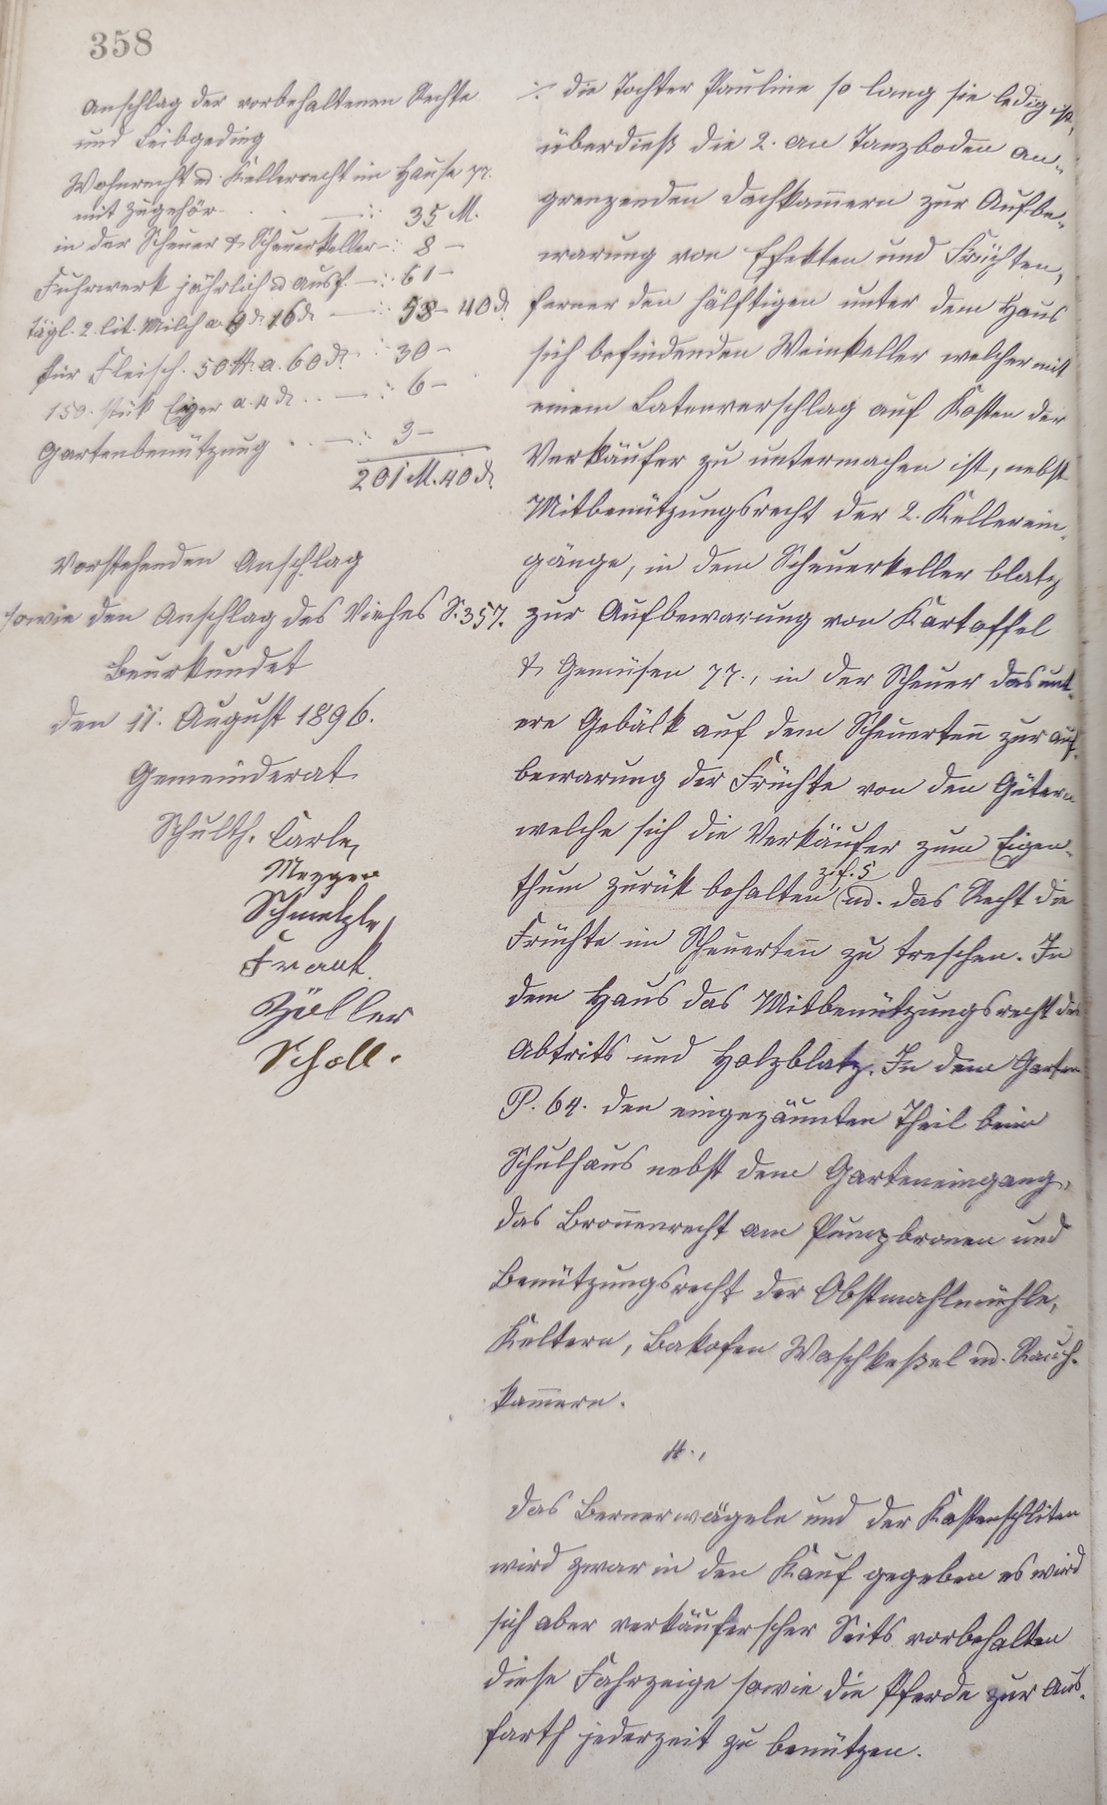 358
Anschlag der vorbehaltenen Rechte
und Leibgeding
Wohnrecht u. Kellerrecht im Hause pp.
mit Zugehör . . —: 35 M.
in der Scheuer & Scheuerkeller —: 8 —
Fuhrwerk jährlich —: 61 —
tägl. 2. lit. Milch a. 8 d. 16 d. —: 58 — 40 d.
für Fleisch. 50 ℔. a. 60 d. —: 30 —
150. stük Eyer a. 4 d. . . —: 6 —
Gartenbenützung . . —: 3 —
201 M. 40 d.
Vorstehenden Anschlag
sowie den Anschlag des Viehes S. 357.
Beurkundet
den 11. August 1896.
Gemeinderat
Schulth. Carle,
Mezger
Schmelzle,
Frank.
Zöller
Scholl.
·/· die Tochter Pauline so lang sie ledig ist,
überdieß die 2. an Tanzboden an-
grenzenden Dachkam̄ern zur Aufbe-
warung von Efekten und Früchten,
ferner den hälftigen unter dem Haus
sich befindenden Weinkeller welcher mit
einem Latenverschlag auf Kosten der
Verkäufer zu untermachen ist, nebst
Mitbenützungsrecht der 2. Kellerein-
gänge, in dem Scheuerkeller blatz
zur Aufbewarung von Kartoffel
& Gemüsen pp., in der Scheuer das unt-
ere Gebälk auf dem Scheuerten̄ zur Auf-
bewarung der Früchte von den Gütern
welche sich die Verkäufer zum Eigen-
thum zurük behalten (zif. 5 u. das Recht die
Früchte im Scheuerten̄ zu treschen. In
dem Haus das Mitbenützungsrecht des
Abtrits und Holzblatz. In dem Garten
P. 64. den eingezäunten Theil beim
Schulhaus nebst dem Garteneingang,
das Bron̄enrecht am Pumpbronen und
Benützungsrecht der Obstmahlmühle,
Keltern, Bakofen Waschkeßel u. Rauch-
kam̄ern.
4.,
Das Bernerwägele und der Kastenschliten
wird zwar in den Kauf gegeben es wird
sich aber verkäuferscher Seits vorbehalten
diese Fahrzeige sowie die Pferde zur Aus-
farth jederzeit zu benützen.